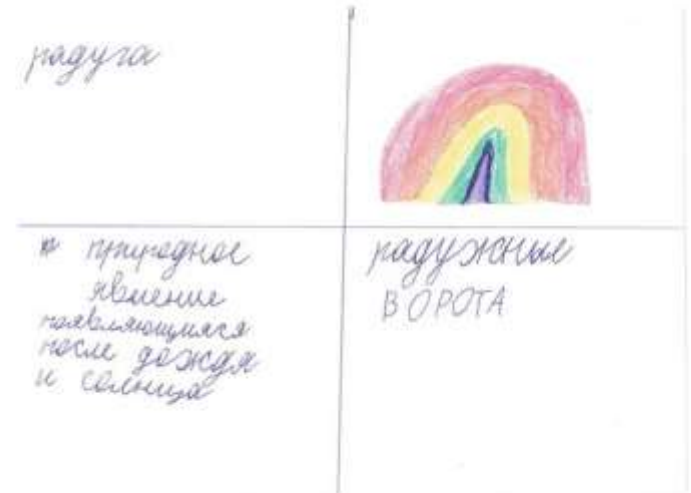 радуга
природное
явление
появляющияся
после дождя
и солнца
радужные
ВОРОТА